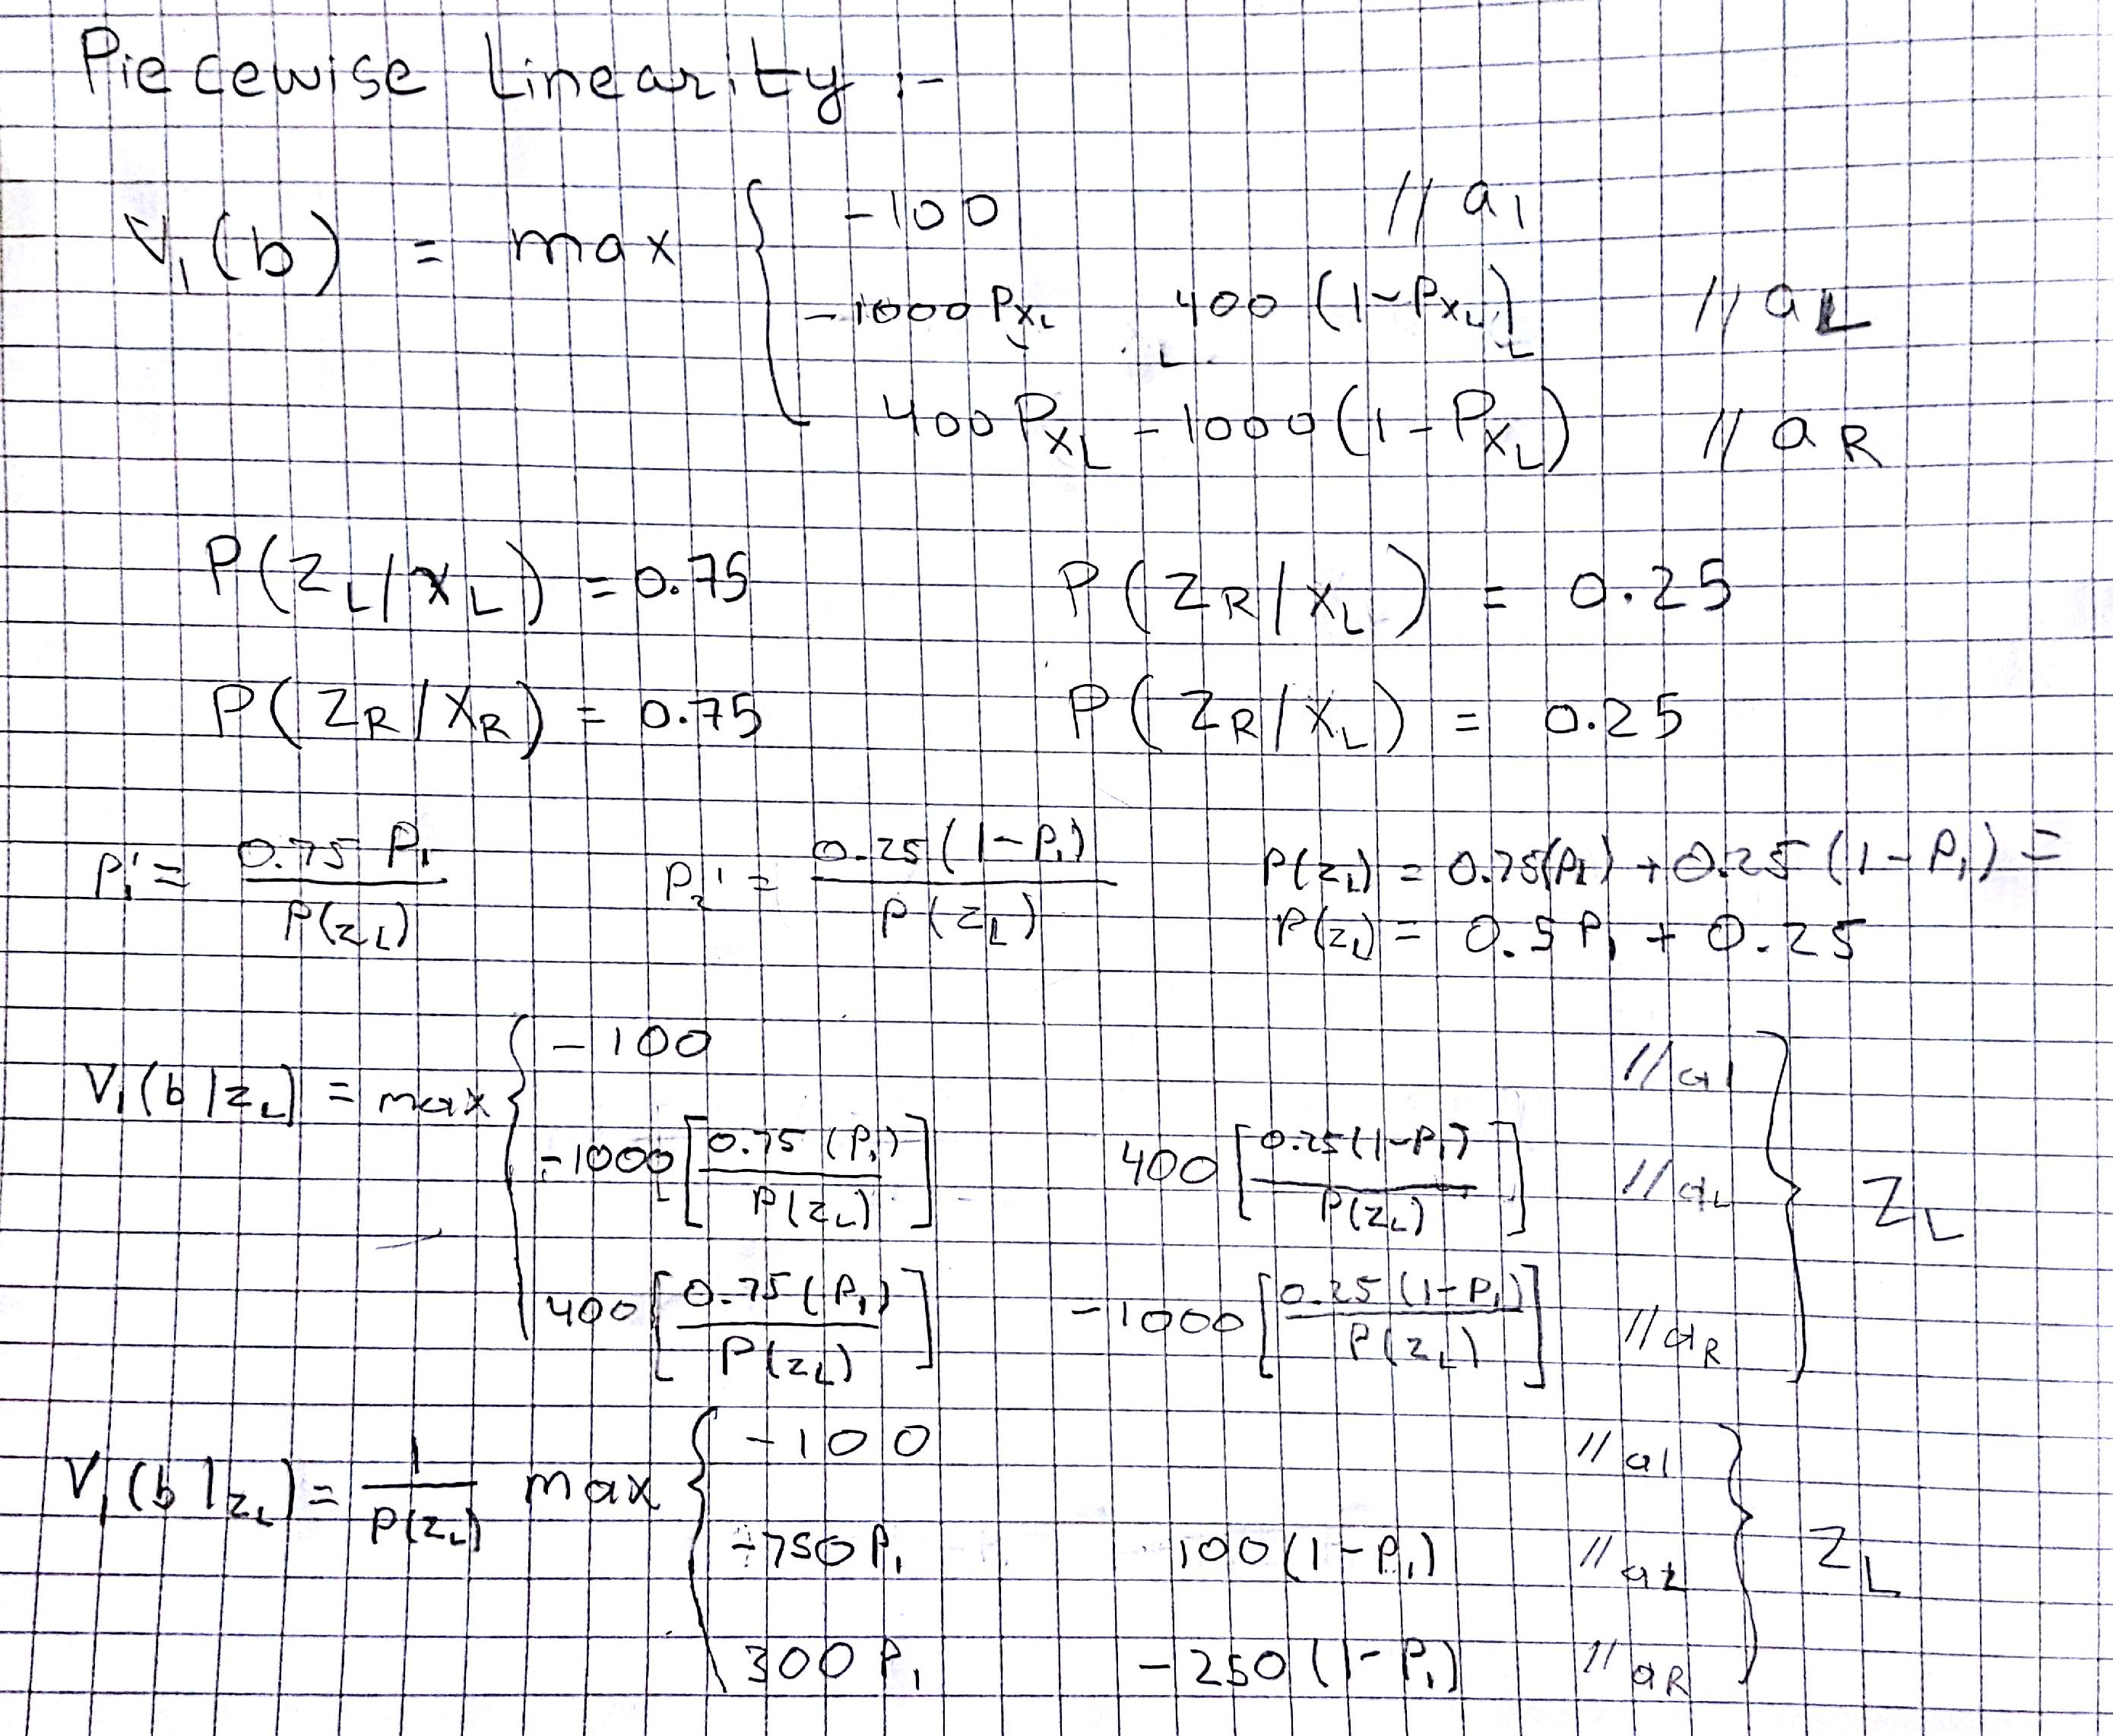 Piecewise Linearity :-
V₁(b) = max { -100 // a1
-1000 P_{X_L} 400 (1-P_{X_L}) // a_L
400 P_{X_L} - 1000 (1-P_{X_L}) // a_R
P(Z_L/X_L) = 0.75 P(Z_R/X_L) = 0.25
P(Z_R/X_R) = 0.75 P(Z_R/X_L) = 0.25
P₁' = 0.75 P₁ / P(Z_L) P₂' = 0.25(1-P₁) / P(Z_L) P(Z_L) = 0.75(P₁) + 0.25(1-P₁) =
P(Z_L) = 0.5 P₁ + 0.25
V₁(b|Z_L) = max { -100 // a1
-1000 [0.75(P₁) / P(Z_L)] 400 [0.25(1-P₁) / P(Z_L)] // a_L } Z_L
400 [0.75(P₁) / P(Z_L)] -1000 [0.25(1-P₁) / P(Z_L)] // a_R
V₁(b|Z_L) = 1/P(Z_L) max { -100 // a1
-750 P₁ 100(1-P₁) // a_L } Z_L
300 P₁ -250(1-P₁) // a_R